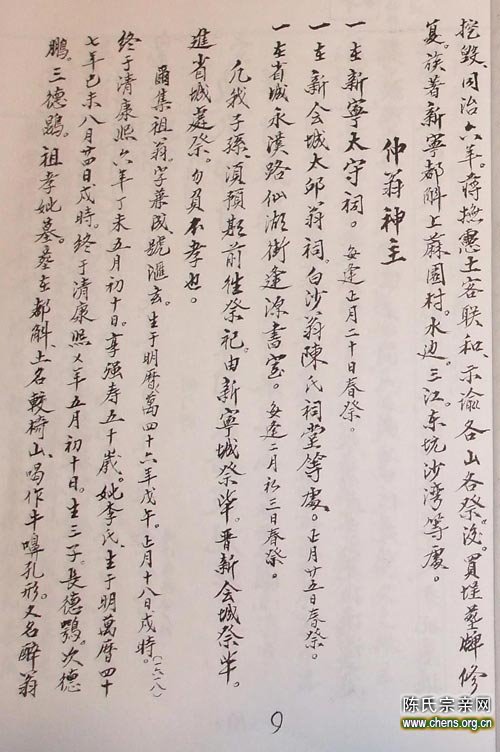 挖毀。同治六年。蔣撫憲土客联和。示諭各山各祭。後買堆墓碑修
复。族著新寧都斛上蔴園村。水边。三江。东坑沙湾等處。
仲翁神主
一在新寧太守祠。每逢正月二十日春祭。
一在新会城太邱翁祠。白沙翁陳氏祠堂等處。正月廿五日春祭。
一在省城永漢路仙湖街逢源書室。每逢二月初三日春祭。
凡我子孫。須預期前徃祭祀。由新寧城祭毕。晋新会城祭毕。
進省城庭祭。勿負不孝也。
爾集祖翁。字兼成。號滙玄。生于明歷萬四十六年戊午。正月十八日戌時。(一六一八)
终于清康熙六年丁未五月初十日。享强寿五十歲。妣李氏。生于明萬曆四十
七年已未八月廿四日戌時。终于清康熙乂年五月初十日。生三子。長德鶚。次德
鵬。三德鵾。祖孝妣墓塟在都斛土名較椅山。喝作牛嗥孔形。又名醉翁
9
陈氏宗亲网
www.chens.org.cn